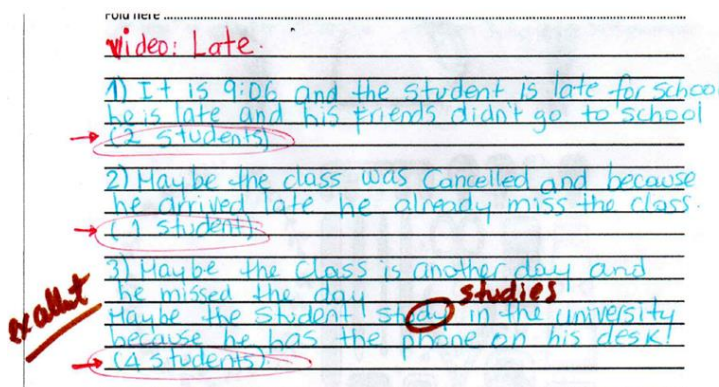 Fold here
Video: Late.
1) It is 9:06 and the student is late for school
he is late and his friends didn't go to school
(2 students)
2) Maybe the class was cancelled and because
he arrived late he already miss the class.
(1 student)
3) Maybe the class is another day and
he missed the day
studies
Maybe the student study in the university
because he has the phone on his desk!
(4 students)
exallent